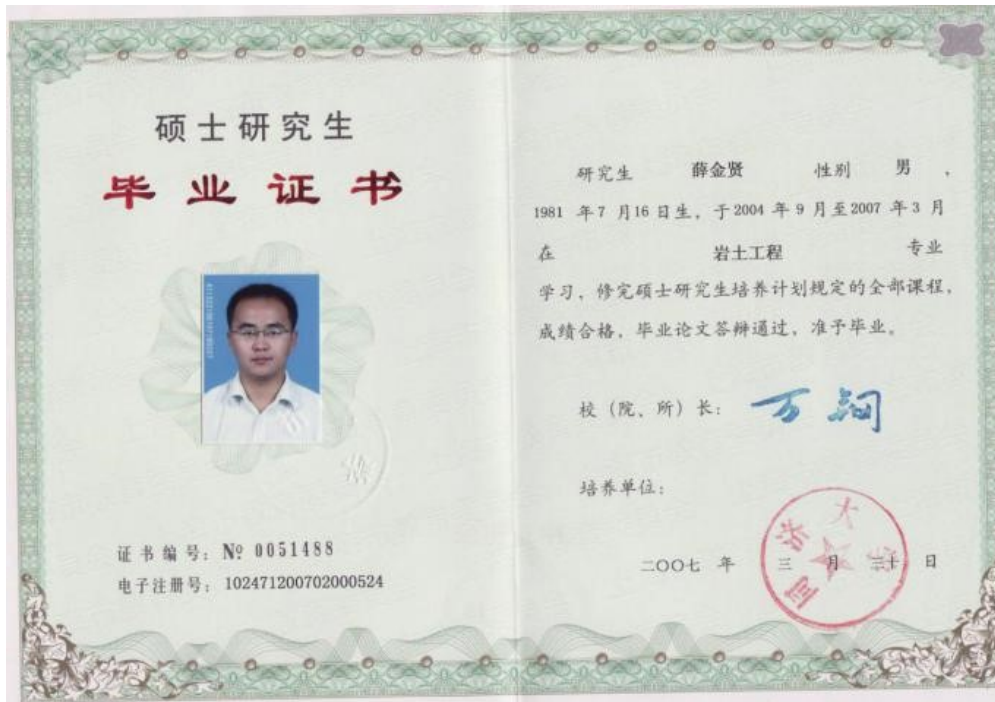 硕士研究生
毕业证书
证书编号：№ 0051488
电子注册号：102471200702000524
研究生 薛金贤 性别 男 ，
1981 年 7 月 16 日生，于 2004 年 9 月至 2007 年 3 月
在 岩土工程 专业
学习，修完硕士研究生培养计划规定的全部课程，
成绩合格，毕业论文答辩通过，准予毕业。
校（院、所）长： 万钢
培养单位：
同济大学
二〇〇七 年 三 月 三十 日